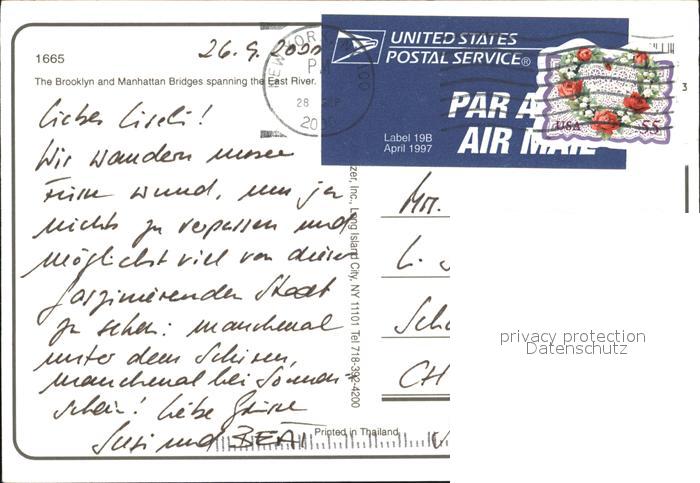 1665
26.9.2000
The Brooklyn and Manhattan Bridges spanning the East River.
NEW YORK
28 SEP
UNITED STATES
POSTAL SERVICE®
PAR A
AIR MAIL
Label 19B
April 1997
USA 55
3
Liebes Liseli!
Wir wandern unsere
Füsse wund, um ja
nichts zu verpassen und
möglichst viel von dieser
faszinierenden Stadt
zu sehen: manchmal
unter dem Schirm,
manchmal bei Sonnen-
schein! Liebe Grüsse
Susi und BEAT
zer, Inc., Long Island City, NY 11101 Tel 718-392-4200
Printed in Thailand
L.
CH
privacy protection
Datenschutz